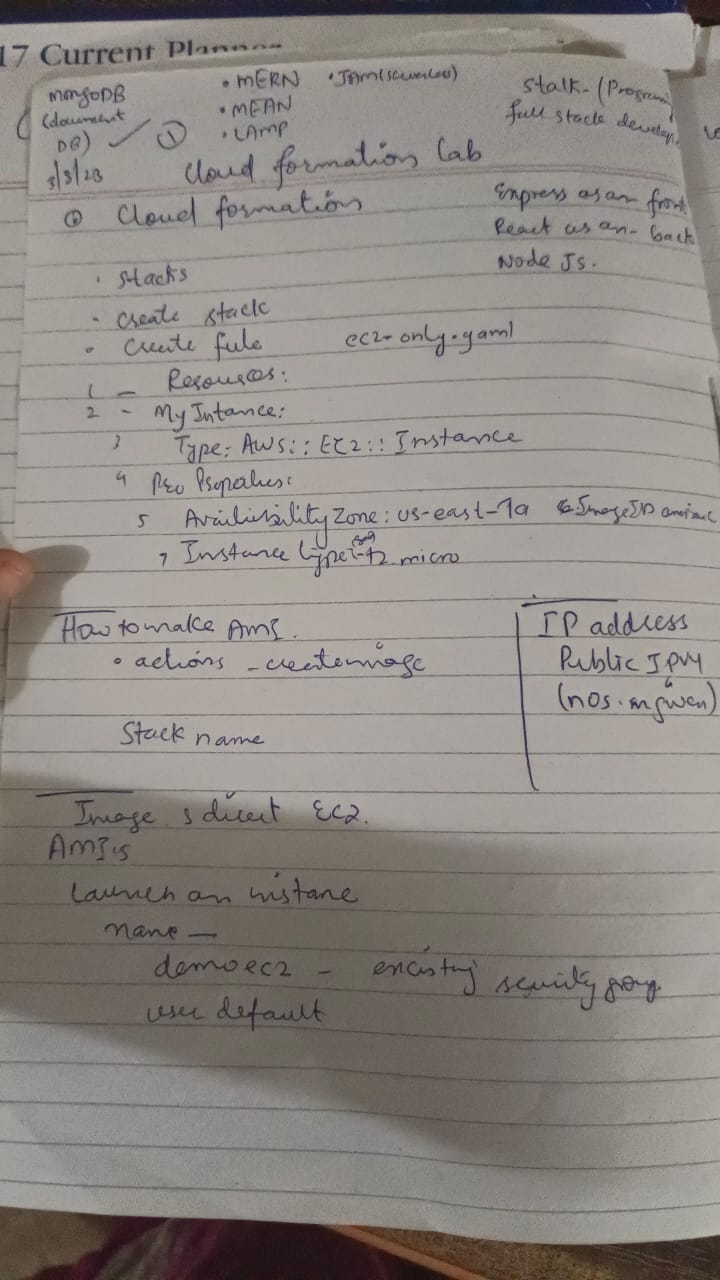 17 Current Planner
mongoDB
(document
DB)
• MERN
• MEAN
• LAMP
• JAM(serverless)
Stalk- (Program
full stack develop
①
3/3/23
Cloud formation Lab
① Cloud formation
Express as an front
React as an- back
Node Js.
• Stacks
- Create stack
• Create file ec2-only.yaml
1 - Resources:
2 - My Intance:
3 Type: AWS:: EC2:: Instance
4 Properties:
5 Availibility Zone: us-east-1a 6 ImageID
7 Instance type: t2.micro
How to make AMI.
• actions - create image
IP address
Public IPV4
(nos. in given)
Stack name
Image s direct EC2.
AMI's
Launch an instane
name —
demoec2 - existing security group
user default